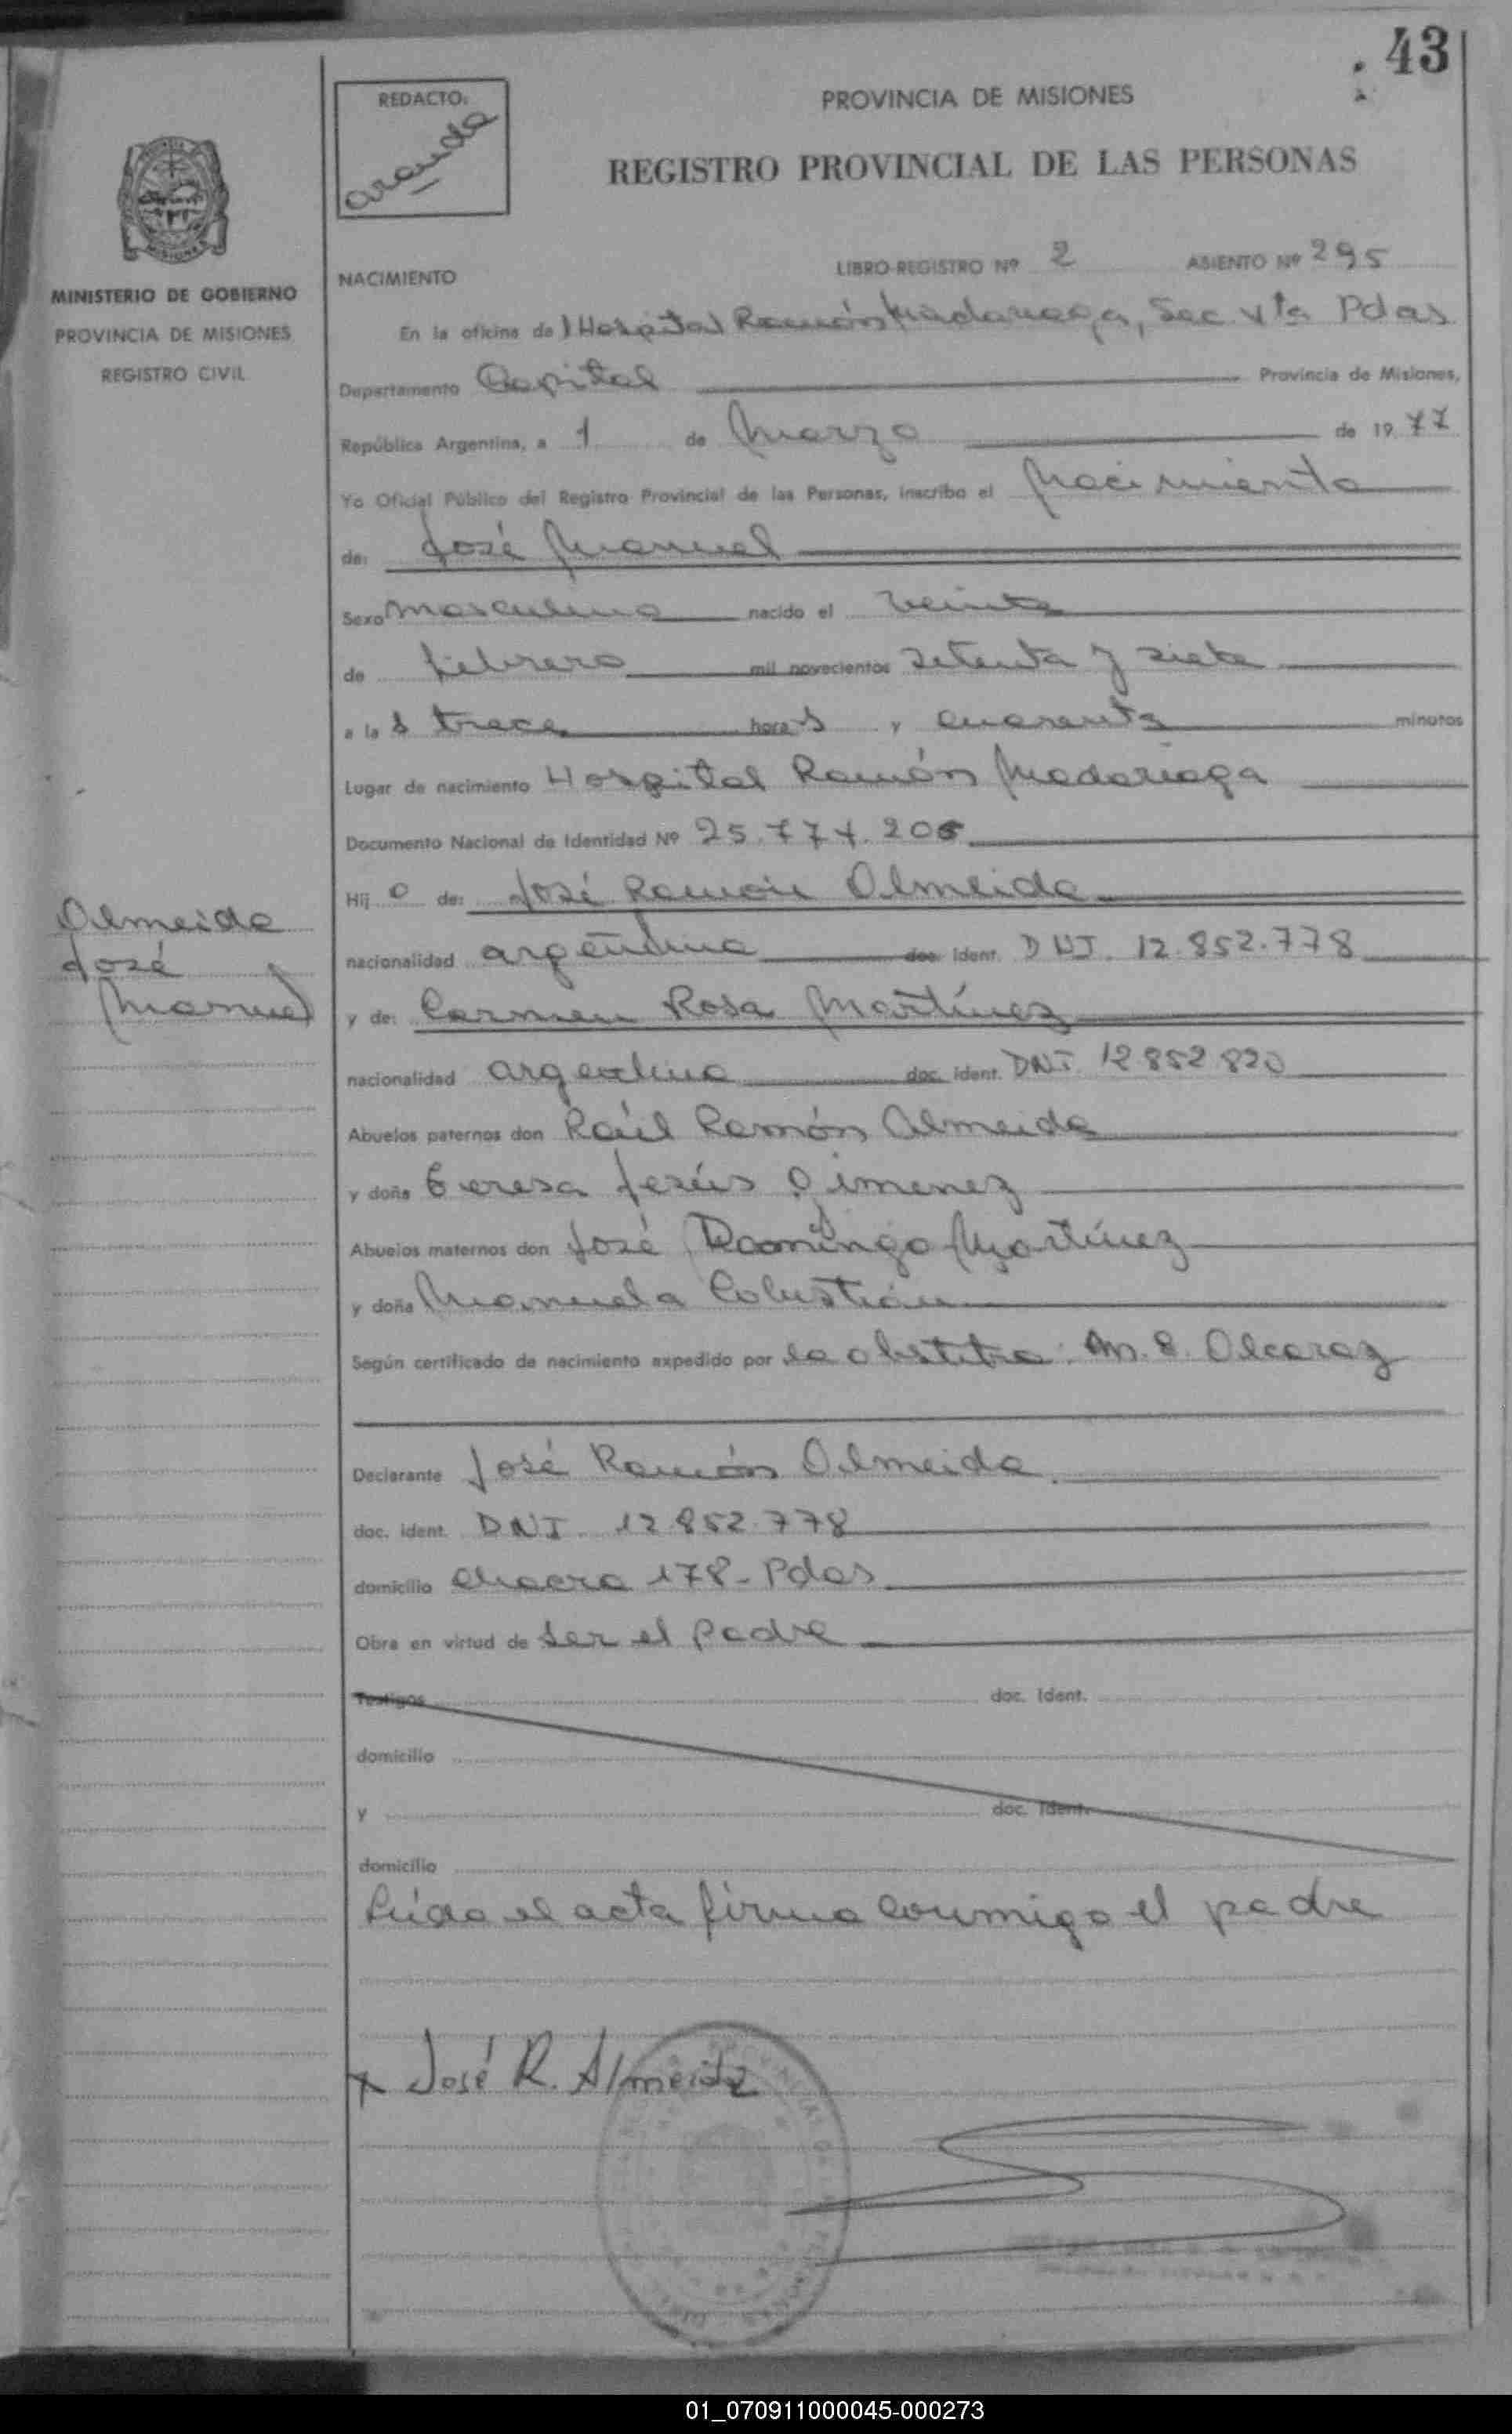 43
REDACTO:
Aranda
PROVINCIA DE MISIONES
REGISTRO PROVINCIAL DE LAS PERSONAS
MINISTERIO DE GOBIERNO
PROVINCIA DE MISIONES
REGISTRO CIVIL
NACIMIENTO LIBRO-REGISTRO Nº 2 ASIENTO Nº 295
En la oficina del Hospital Ramón Madariaga, Sec. Vta Pdas
Departamento Capital Provincia de Misiones,
República Argentina, a 1 de Marzo de 1977
Yo Oficial Público del Registro Provincial de las Personas, inscribo el Nacimiento
de: José Manuel
Sexo masculino nacido el veinte
de febrero mil novecientos setenta y siete
a las trece horas y cuarenta minutos
Lugar de nacimiento Hospital Ramón Madariaga
Documento Nacional de Identidad Nº 25.774.206
Hijo de: José Ramón Almeida
nacionalidad argentina doc. ident. DNI. 12.852.778
Almeida
José
Manuel
y de: Carmen Rosa Martínez
nacionalidad argentina doc. ident. DNI. 12.852.820
Abuelos paternos don Raúl Ramón Almeida
y doña Teresa Jesús Gimenez
Abuelos maternos don José Domingo Martínez
y doña Manuela
Según certificado de nacimiento expedido por la obstetra: M. E. Alcaraz
Declarante José Ramón Almeida
doc. ident. DNI. 12.852.778
domicilio chacra 178 - Pdas
Obra en virtud de ser el padre
Testigos doc. Ident.
domicilio
y doc. Ident.
domicilio
Leída el acta firma conmigo el padre
x José R. Almeida
01_070911000045-000273